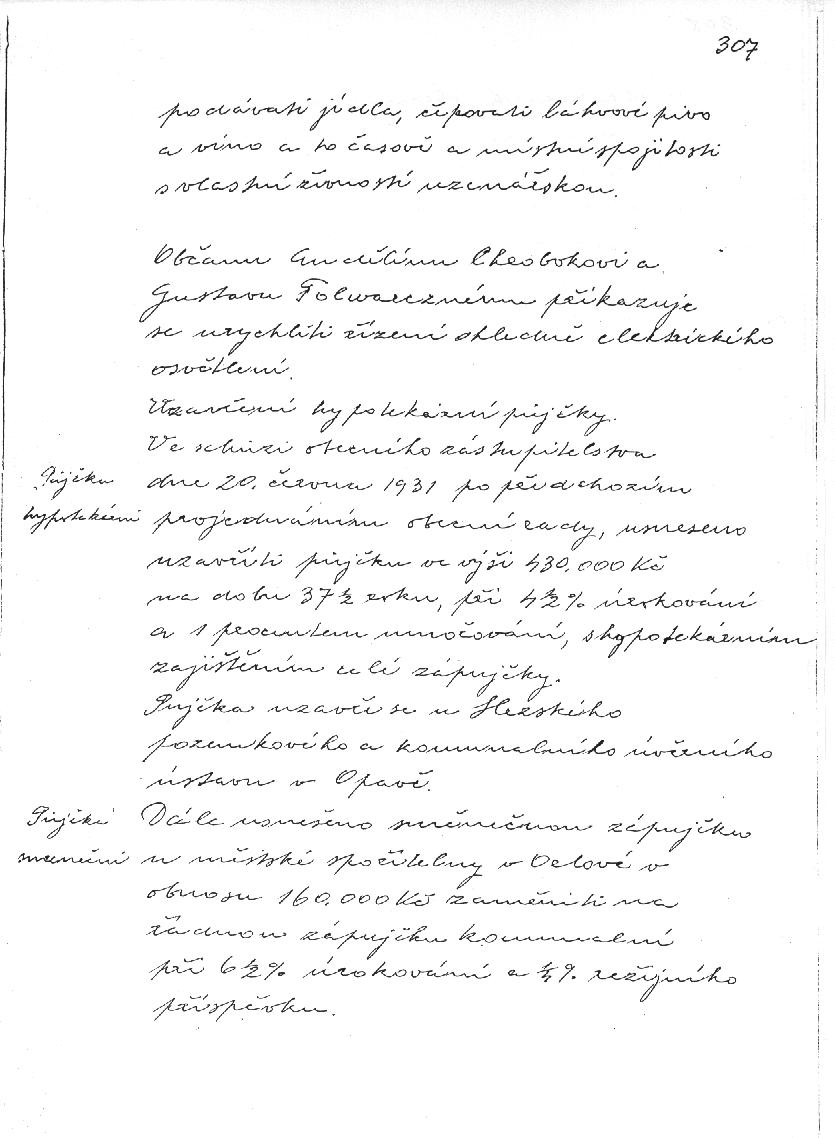 307
podávati jídla, čepovati láhvové pivo
a víno a to časově a místní spojitosti
s vlastní živností uzenářskou.
Občanu Chrobokovi a
Gustavu Folwarcznému přikazuje
se urychliti řízení ohledně elektrického
osvětlení.
Uzavření hypotekární půjčky.
Ve schůzi obecního zastupitelstva
Půjčka
dne 20. června 1931 po předchozím
hypotekární
projednáním obecní rady, usneseno
uzavříti půjčku ve výši 430.000 Kč
na dobu 37½ roku, při 4½% úrokování
a 1 procentem umořování, s hypotekárním
zajištěním celé zápujčky.
Pujčka uzavře se u Slezského
pozemkového a komunalního úvěrního
ústavu v Opavě.
Půjčka
Dále usnešeno směnečnou zápujčku
směneční
u městské spořitelny v Orlové v
obnosu 160.000 Kč zaměniti na
řádnou zápujčku komunalní
při 6½% úrokování a ¼% režijního
příspěvku.